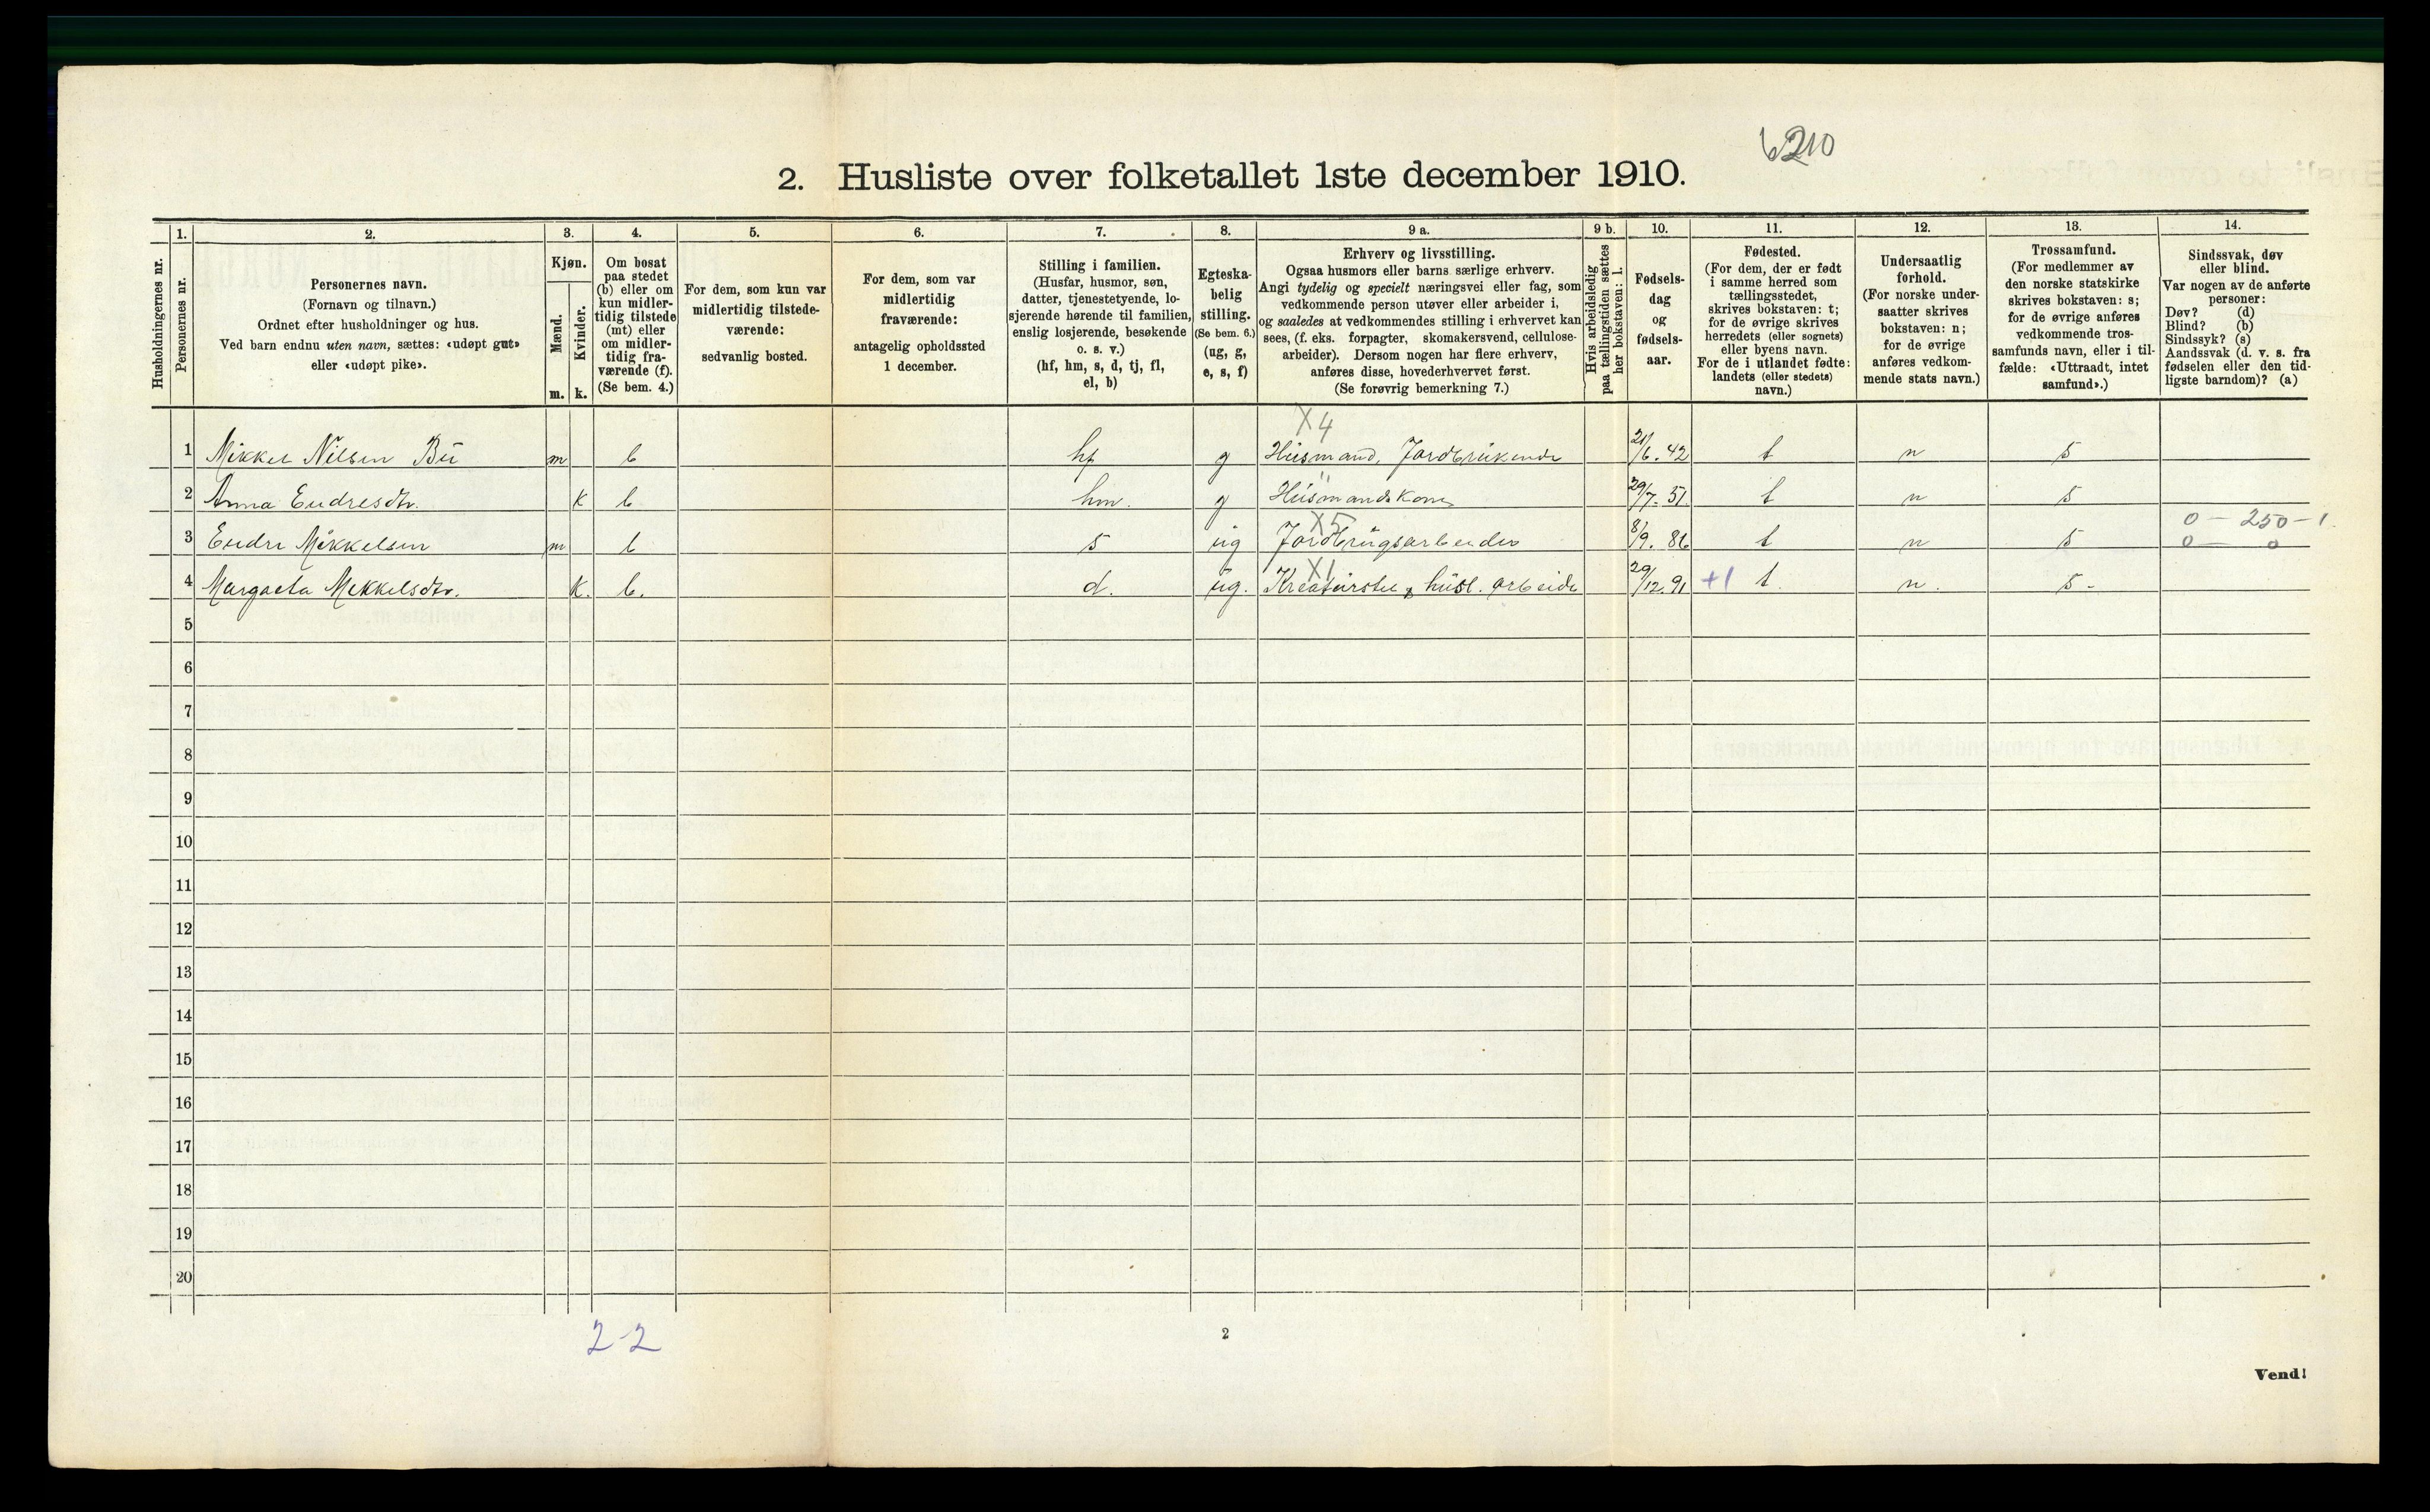 6210
2. Husliste over folketallet 1ste december 1910.
Husholdningernes nr.
1.
Personernes nr.
2.
Personernes navn.
(Fornavn og tilnavn.)
Ordnet efter husholdninger og hus.
Ved barn endnu uten navn, sættes: «udøpt gut»
eller «udøpt pike».
3.
Kjøn.
Mænd.
Kvinder.
m. k.
4.
Om bosat
paa stedet
(b) eller om
kun midler-
tidig tilstede
(mt) eller
om midler-
tidig fra-
værende (f).
(Se bem. 4.)
5.
For dem, som kun var
midlertidig tilstede-
værende:
sedvanlig bosted.
6.
For dem, som var
midlertidig
fraværende:
antagelig opholdssted
1 december.
7.
Stilling i familien.
(Husfar, husmor, søn,
datter, tjenestetyende, lo-
sjerende hørende til familien,
enslig losjerende, besøkende
o. s. v.)
(hf, hm, s, d, tj, fl,
el, b)
8.
Egteska-
belig
stilling.
(Se bem. 6.)
(ug, g,
e, s, f)
9 a.
Erhverv og livsstilling.
Ogsaa husmors eller barns særlige erhverv.
Angi tydelig og specielt næringsvei eller fag, som
vedkommende person utøver eller arbeider i,
og saaledes at vedkommendes stilling i erhvervet kan
sees, (f. eks. forpagter, skomakersvend, cellulose-
arbeider). Dersom nogen har flere erhverv,
anføres disse, hovederhvervet først.
(Se forøvrig bemerkning 7.)
9 b.
Hvis arbeidsledig
paa tællingstiden sættes
her bokstaven: l.
10.
Fødsels-
dag
og
fødsels-
aar.
11.
Fødested.
(For dem, der er født
i samme herred som
tællingsstedet,
skrives bokstaven: t;
for de øvrige skrives
herredets (eller sognets)
eller byens navn.
For de i utlandet fødte:
landets (eller stedets)
navn.)
12.
Undersaatlig
forhold.
(For norske under-
saatter skrives
bokstaven: n;
for de øvrige
anføres vedkom-
mende stats navn.)
13.
Trossamfund.
(For medlemmer av
den norske statskirke
skrives bokstaven: s;
for de øvrige anføres
vedkommende tros-
samfunds navn, eller i til-
fælde: «Uttraadt, intet
samfund».)
14.
Sindssvak, døv
eller blind.
Var nogen av de anførte
personer:
Døv? (d)
Blind? (b)
Sindssyk? (s)
Aandssvak (d. v. s. fra
fødselen eller den tid-
ligste barndom)? (a)
X4
1 Mikkel Nilsen Bü m b hf g Hüsmand, Jordbrükende 21/6. 42 t n s
2 Anna Eudresdtr. k b hm. g Hüsmandskone 29/7. 51 t n s
X5
0 - 250 - 1
3 Eudre Mikkelsen m b s üg Jordbrügsarbeider 8/9. 86 t n s 0 - 0
X1
4 Margreta Mikkelsdtr. k. b. d. üg. Kreatürstel & hüsl. arbeide 29/12. 91 +1 t. n. s-
5
6
7
8
9
10
11
12
13
14
15
16
17
18
19
20
2-2
2
Vend!